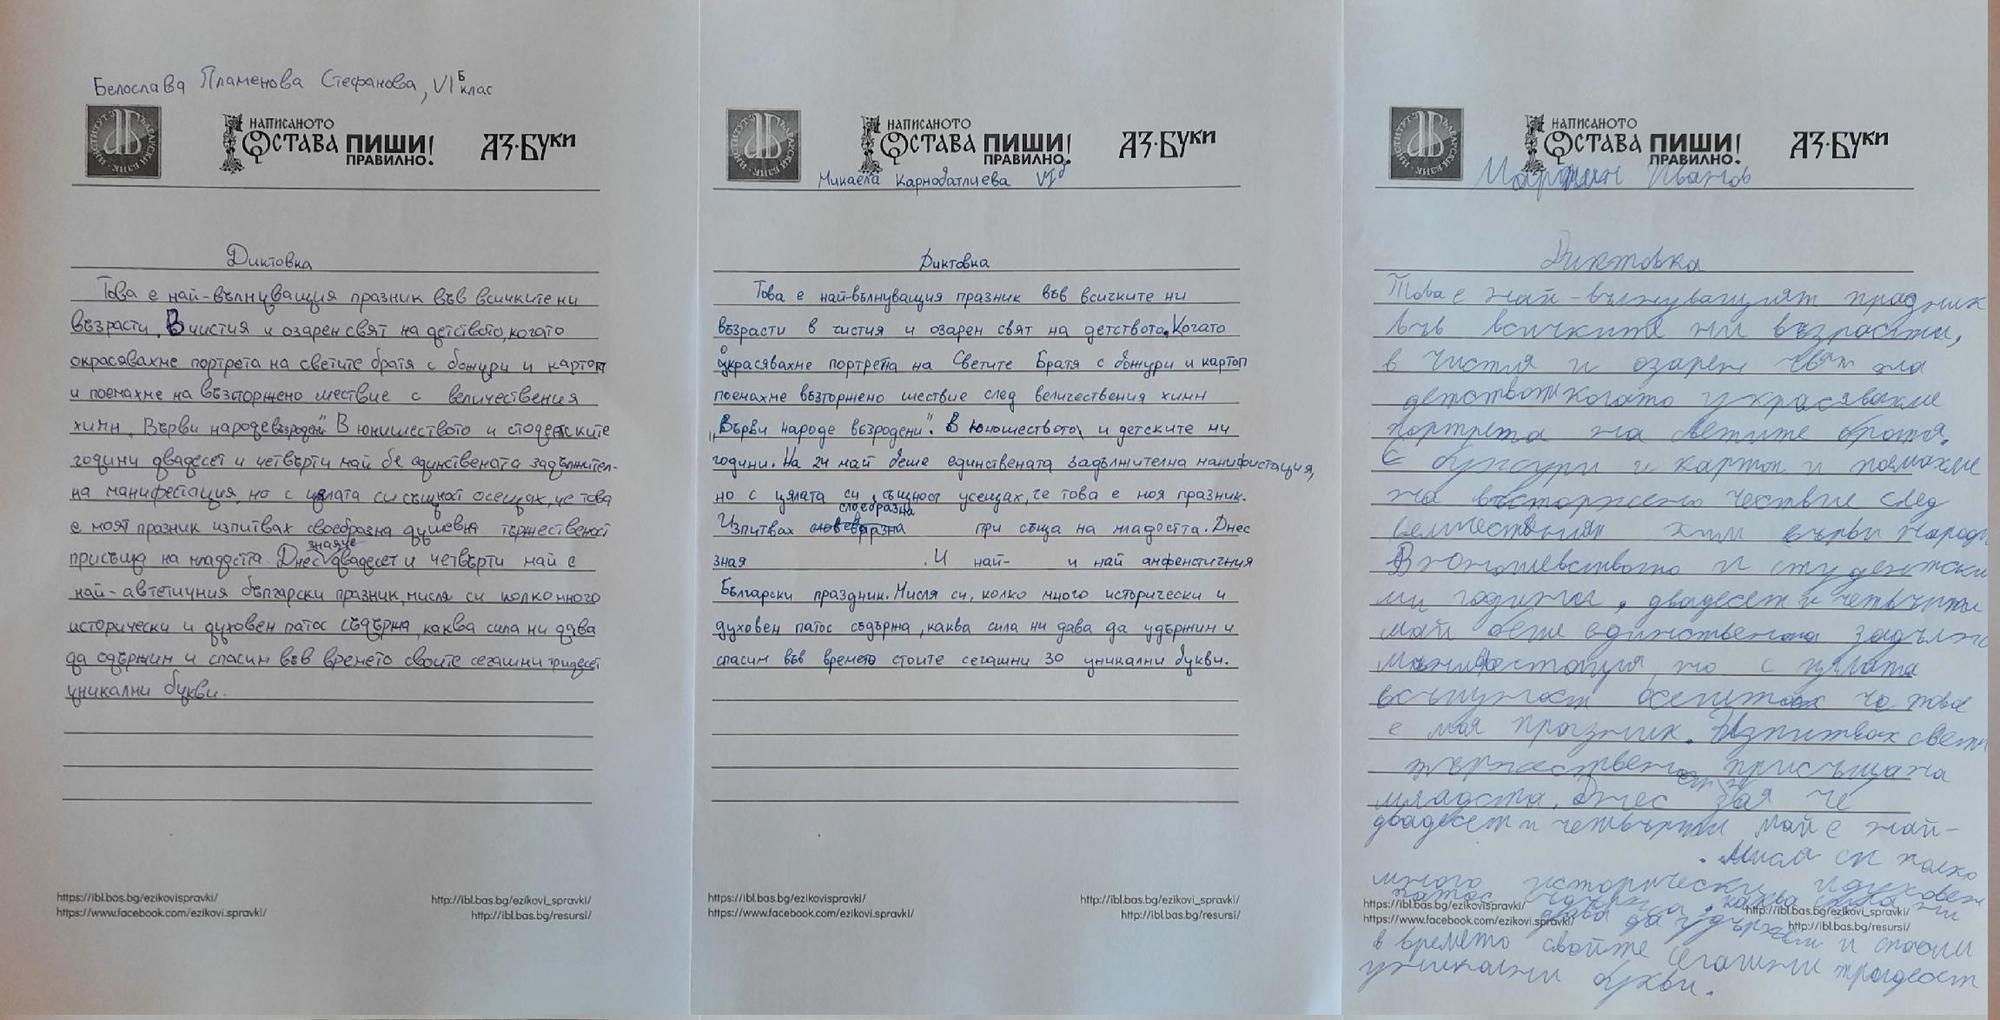 Белослава Пламенова Стефанова, VI Б клас
НАПИСАНОТО
ОСТАВА ПИШИ!
ПРАВИЛНО!
АЗ·БУКИ
Диктовка
Това е най-вълнуващия празник във всичките ни
възрасти. В чистия и озарен свят на детството, когато
окрасявахме портрета на светите братя с божури и картоп
и поемахме на възторжено шествие с величествения
химн „Върви народе възродени" В юнишеството и стодетските
години двадесет и четвърти май бе единствената задължител-
на манифестация, но с цялата си същност осещах, че това
е моят празник изпитвах своеобразна душевна тържественост
присъща на младостта. Днес знаяче двадесет и четвърти май е
най-автетичния български празник, мисля си колко много
исторически и духовен патос съдържа, каква сила ни дава
да одържим и спасим във времето своите сегашни тридесет
уникални букви.
https://ibl.bas.bg/ezikovispravki/
https://www.facebook.com/ezikovi.spravki/
http://ibl.bas.bg/ezikovi_spravki/
http://ibl.bas.bg/resursi/
НАПИСАНОТО
ОСТАВА ПИШИ!
ПРАВИЛНО!
АЗ·БУКИ
Микаела Карнобатлиева VI б
Диктовка
Това е най-вълнуващия празник във всичките ни
възрасти в чистия и озарен свят на детството. Когато
украсявахме портрета на Светите Братя с божури и картоп
поемахме възторжено шествие след величествения химн
„Върви народе възродени". В юношеството и детските ни
години. На 24 май беше единствената задължителна манифистация,
но с цялата си същност усещах, че това е моя празник.
Изпитвах своебразна при съща на младостта. Днес
зная . И най- и най амфентичния
Български праздник. Мисля си, колко много исторически и
духовен патос съдържа, каква сила ни дава да удържим и
спасим във времето стоите сегашни 30 уникални букви.
https://ibl.bas.bg/ezikovispravki/
https://www.facebook.com/ezikovi.spravki/
http://ibl.bas.bg/ezikovi_spravki/
http://ibl.bas.bg/resursi/
НАПИСАНОТО
ОСТАВА ПИШИ!
ПРАВИЛНО!
АЗ·БУКИ
Мартин Иванов
Диктовка
Това е най-вълнуващият празник
във всичките ни възрасти,
в чистия и озарен свят на
когато украсявахме
портрета на светите братя.
С божури и картоп и поемахме
на въсторжено чествие след
величествения химн върви народе
В юношевството и студентски
ни години, двадесет и четвърти
май беше единствената
манифестация, но с цялата
същуност осещтах че това
е моя празник. Изпитвах
тържественост присъщана
младоста. Днес зная че
двадесет и четвърти май е най-
. Мисля си колко
много исторически и духовен
патос каква сила ни
дава да удържим и спасим
в времето свойте сегашни тридесет
уникални букви.
https://ibl.bas.bg/ezikovispravki/
https://www.facebook.com/ezikovi.spravki/
http://ibl.bas.bg/ezikovi_spravki/
http://ibl.bas.bg/resursi/